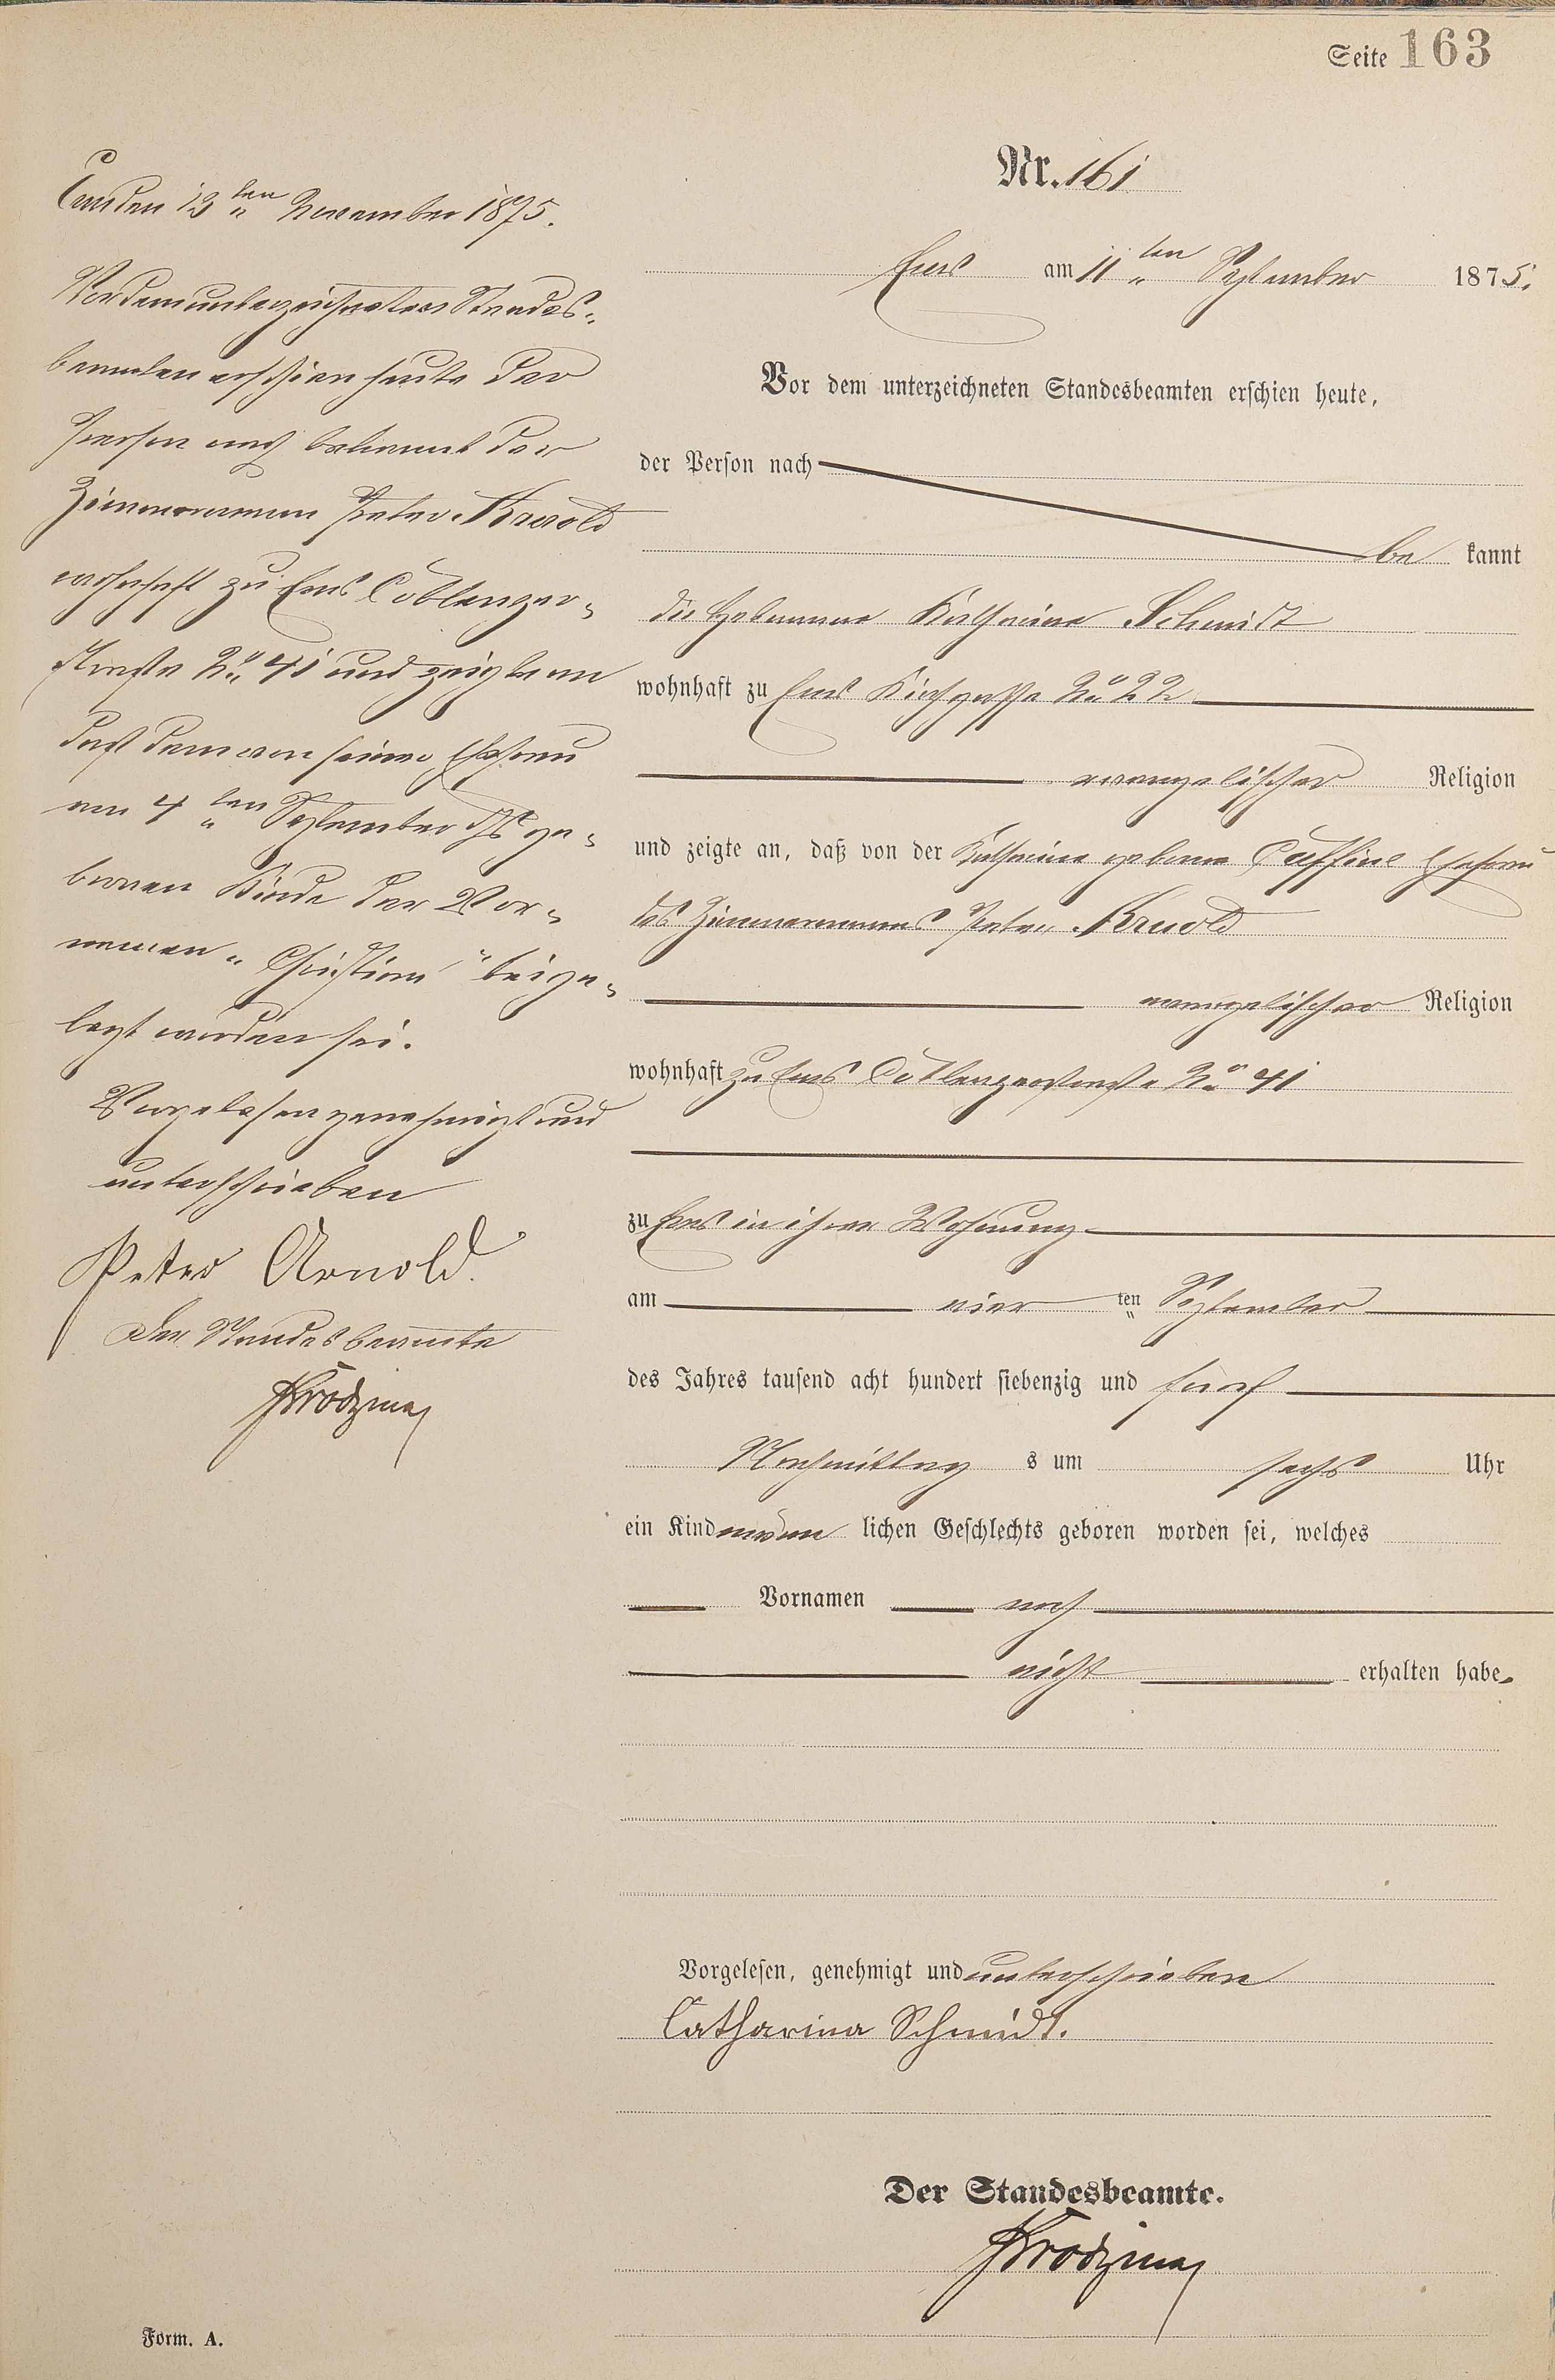 Seite 163
Nr. 161
Ems am 11ten September 1875.
Vor dem unterzeichneten Standesbeamten erschien heute,
der Person nach
be kannt
die Hebamme Katharina Schmidt
wohnhaft zu Ems Kirchgasse No 22
evangelischer Religion
und zeigte an, daß von der Katharina geborne Ehefrau
des Zimmermanns Peter Arnold
evangelischer Religion
wohnhaft zu Ems Coblenzerstraße No 41
zu Ems in ihrer Wohnung
am vier ten September
des Jahres tausend acht hundert siebenzig und fünf
Nachmittag s um sechs Uhr
ein Kind männ lichen Geschlechts geboren worden sei, welches
Vornamen noch
nicht erhalten habe.
Vorgelesen, genehmigt und unterschrieben
Catharina Schmidt.
Der Standesbeamte.
Ems den 13ten November 1875.
Vor dem unterzeichneten Standes-
beamten erschien heute der
Person nach bekannt der
Zimmermann Peter Arnold
wohnhaft zu Ems Coblenzer-
straße No 41 und zeigte an
daß dem von seiner Ehefrau
am 4ten September ge-
bornen Kinde der Vor-
namen "Christian" beige-
legt worden sei.
Vorgelesen genehmigt und
unterschrieben
Peter Arnold.
Der Standesbeamte
Form. A.